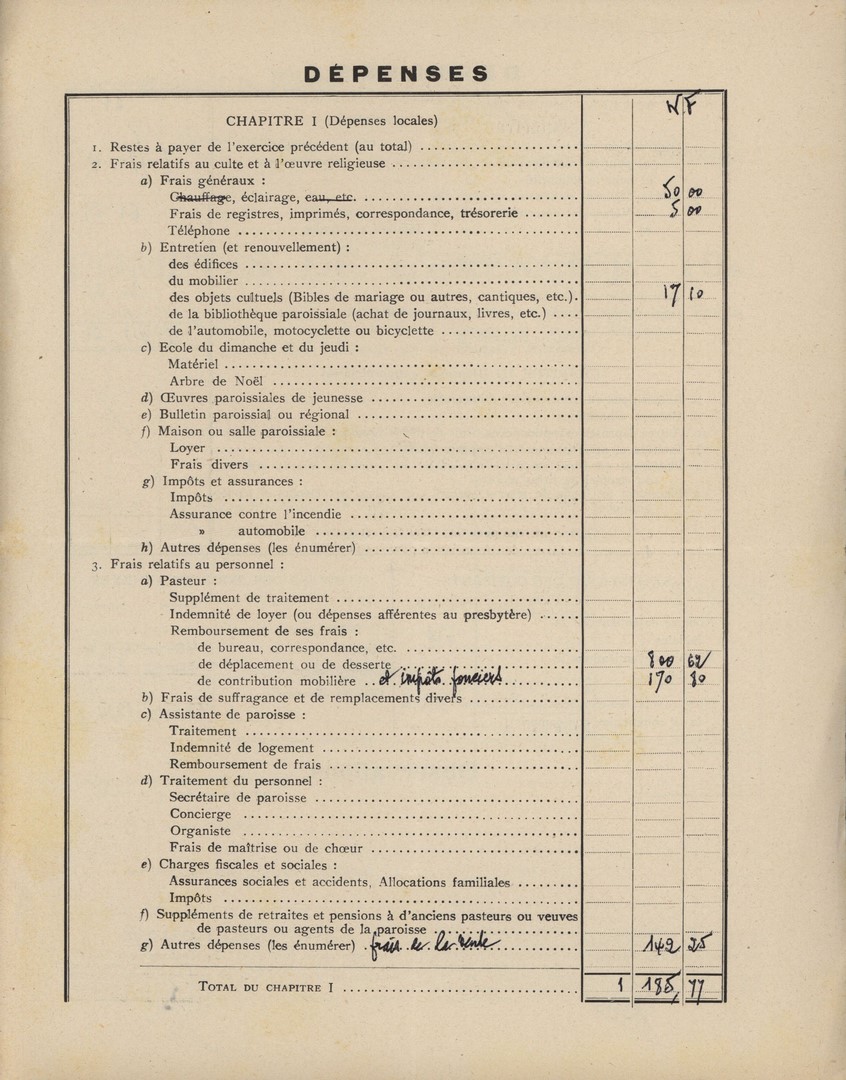 DÉPENSES
NF
CHAPITRE I (Dépenses locales)
1. Restes à payer de l'exercice précédent (au total)
2. Frais relatifs au culte et à l'œuvre religieuse
a) Frais généraux :
Chauffage, éclairage, eau, etc. 50 00
Frais de registres, imprimés, correspondance, trésorerie 5 00
Téléphone
b) Entretien (et renouvellement) :
des édifices
du mobilier
des objets cultuels (Bibles de mariage ou autres, cantiques, etc.). 17 10
de la bibliothèque paroissiale (achat de journaux, livres, etc.)
de l'automobile, motocyclette ou bicyclette
c) Ecole du dimanche et du jeudi :
Matériel
Arbre de Noël
d) Œuvres paroissiales de jeunesse
e) Bulletin paroissial ou régional
f) Maison ou salle paroissiale :
Loyer
Frais divers
g) Impôts et assurances :
Impôts
Assurance contre l'incendie
» automobile
h) Autres dépenses (les énumérer)
3. Frais relatifs au personnel :
a) Pasteur :
Supplément de traitement
Indemnité de loyer (ou dépenses afférentes au presbytère)
Remboursement de ses frais :
de bureau, correspondance, etc.
de déplacement ou de desserte 800 62
de contribution mobilière et impôts fonciers 170 80
b) Frais de suffragance et de remplacements divers
c) Assistante de paroisse :
Traitement
Indemnité de logement
Remboursement de frais
d) Traitement du personnel :
Secrétaire de paroisse
Concierge
Organiste
Frais de maîtrise ou de chœur
e) Charges fiscales et sociales :
Assurances sociales et accidents, Allocations familiales
Impôts
f) Suppléments de retraites et pensions à d'anciens pasteurs ou veuves
de pasteurs ou agents de la paroisse
g) Autres dépenses (les énumérer) frais de la vente 142 25
TOTAL DU CHAPITRE I 1 185, 77